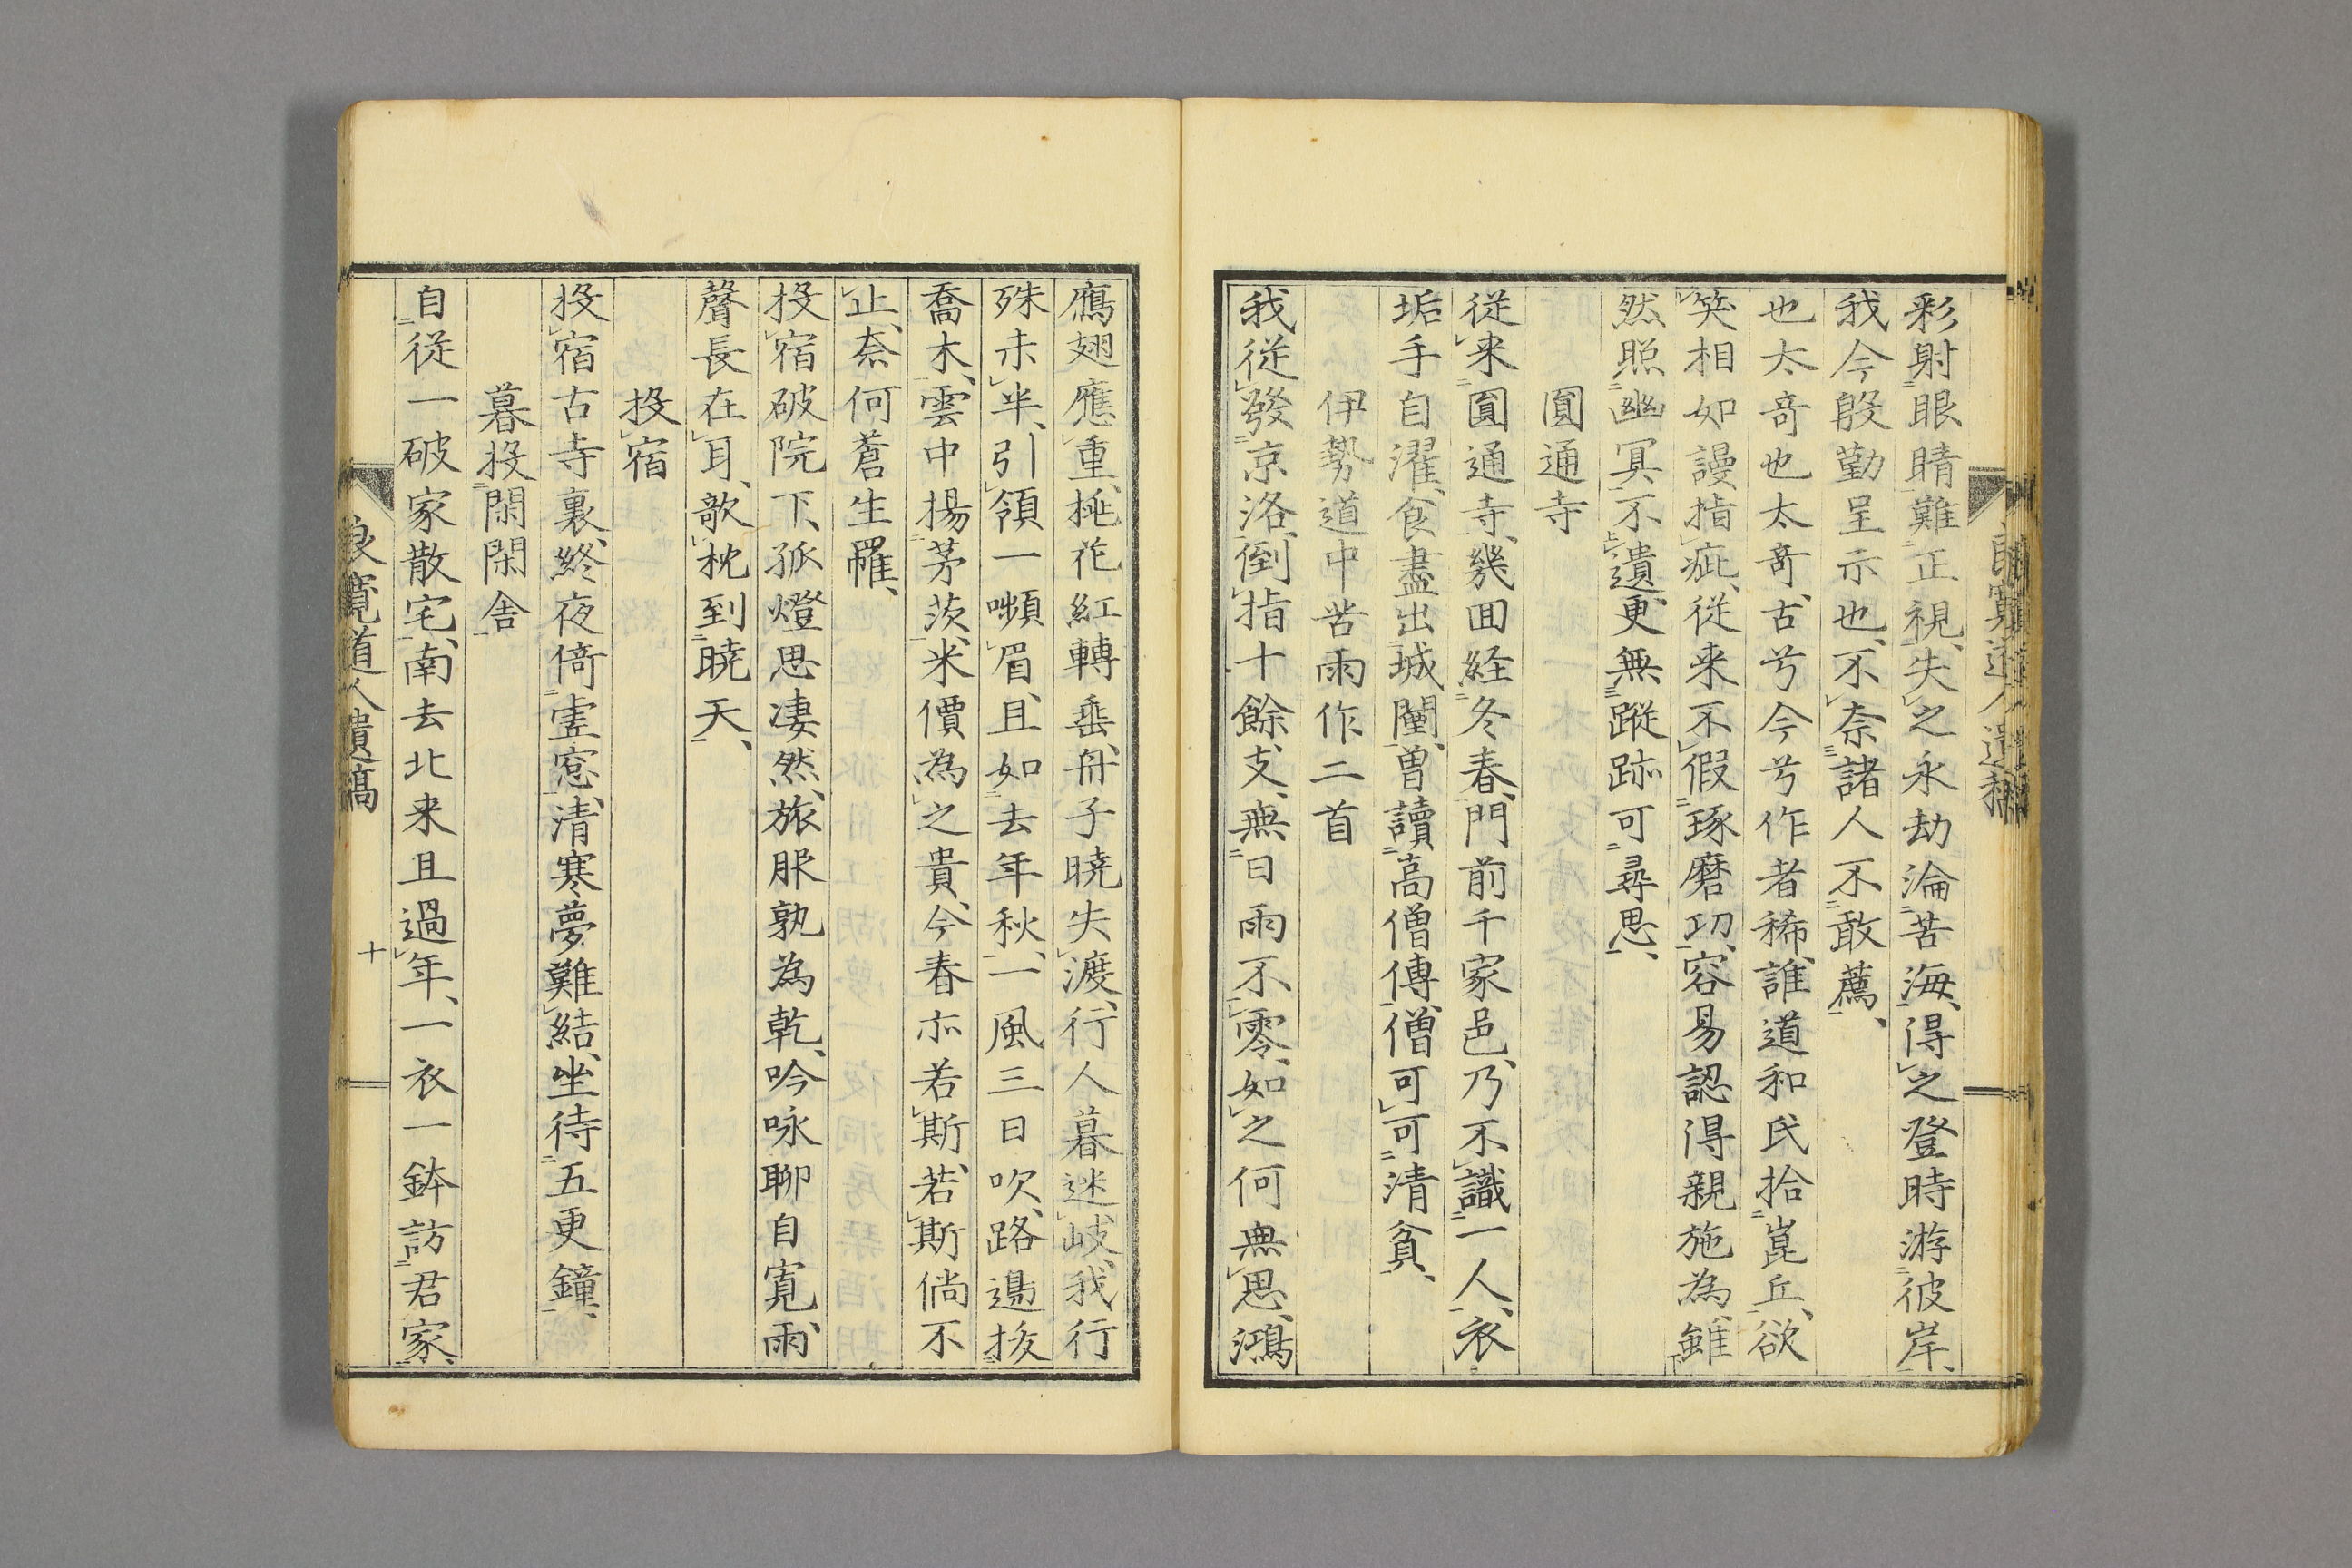 彩射眼睛難正視、失之永劫淪苦海、得之登時游彼岸、
我今殷勤呈示也、不奈諸人不敢薦、
也太奇也太奇、古兮今兮作者稀、誰道和氏拾崑丘、欲
笑相如謾指疵、従来不假琢磨功、容易認得親施為、雖
然照幽冥不遺、更無蹤跡可尋思、
圓通寺
従来圓通寺、幾回経冬春、門前千家邑、乃不識一人、衣
垢手自濯、食盡出城闉、曽讀高僧傳、僧可可清貧、
伊勢道中苦雨作二首
我従發京洛、倒指十餘支、無日雨不零、如之何無思、鴻
鴈翅應重、桃花紅轉垂、舟子暁失渡、行人暮迷岐、我行
殊未半、引領一嚬眉、且如去年秋、一風三日吹、路邊抜
喬木、雲中揚茅茨、米價為之貴、今春亦若斯、若斯倘不
止、奈何蒼生罹、
投宿破院下、孤燈思凄然、旅服孰為乾、吟咏聊自寛、雨
聲長在耳、欹枕到暁天、
投宿
投宿古寺裏、終夜倚虗窓、清寒夢難結、坐待五更鐘、
暮投閑閑舎
自従一破家散宅、南去北来且過年、一衣一鉢訪君家、
良寛道人遺稿
十